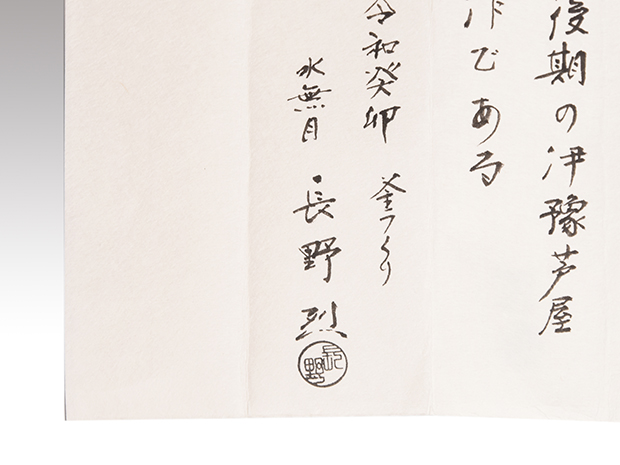 後期の伊豫芦屋
作である
令和癸卯 釜つくり
水無月 長野烈
長野